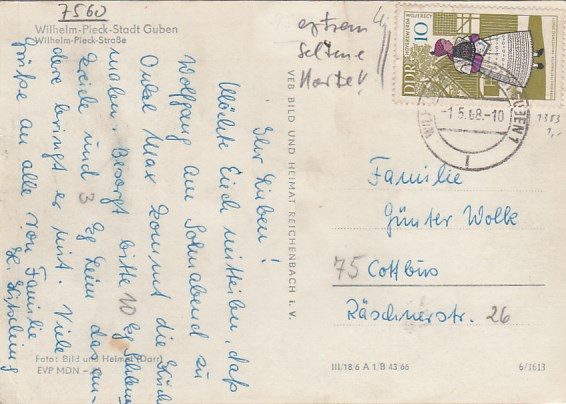 7560
Wilhelm-Pieck-Stadt Guben
Wilhelm-Pieck-Straße
extrem
seltene
Marke!
DDR 10
-1.5.68.-10
GUBEN 1
1353
1,-
Ihr Lieben!
Möchte Euch mitteilen, daß
Wolfgang am Sonnabend zu
Onkel Max kommt die Küche
malen. Besorgt bitte 10 kg
Kreide und 3 kg Leim das an-
dere bringt er mit. Viele
Grüße an alle von Familie
VEB BILD UND HEIMAT REICHENBACH I. V.
Familie
Günter Wolk
75 Cottbus
Räschnerstr. 26
Foto: Bild und Heimat (Darr)
EVP MDN
III/18/6 A 1/B 43/66
6/1613